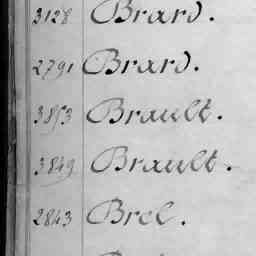 3128 Brard.
2791 Brard.
3853 Brault.
3849 Brault.
2843 Brel.